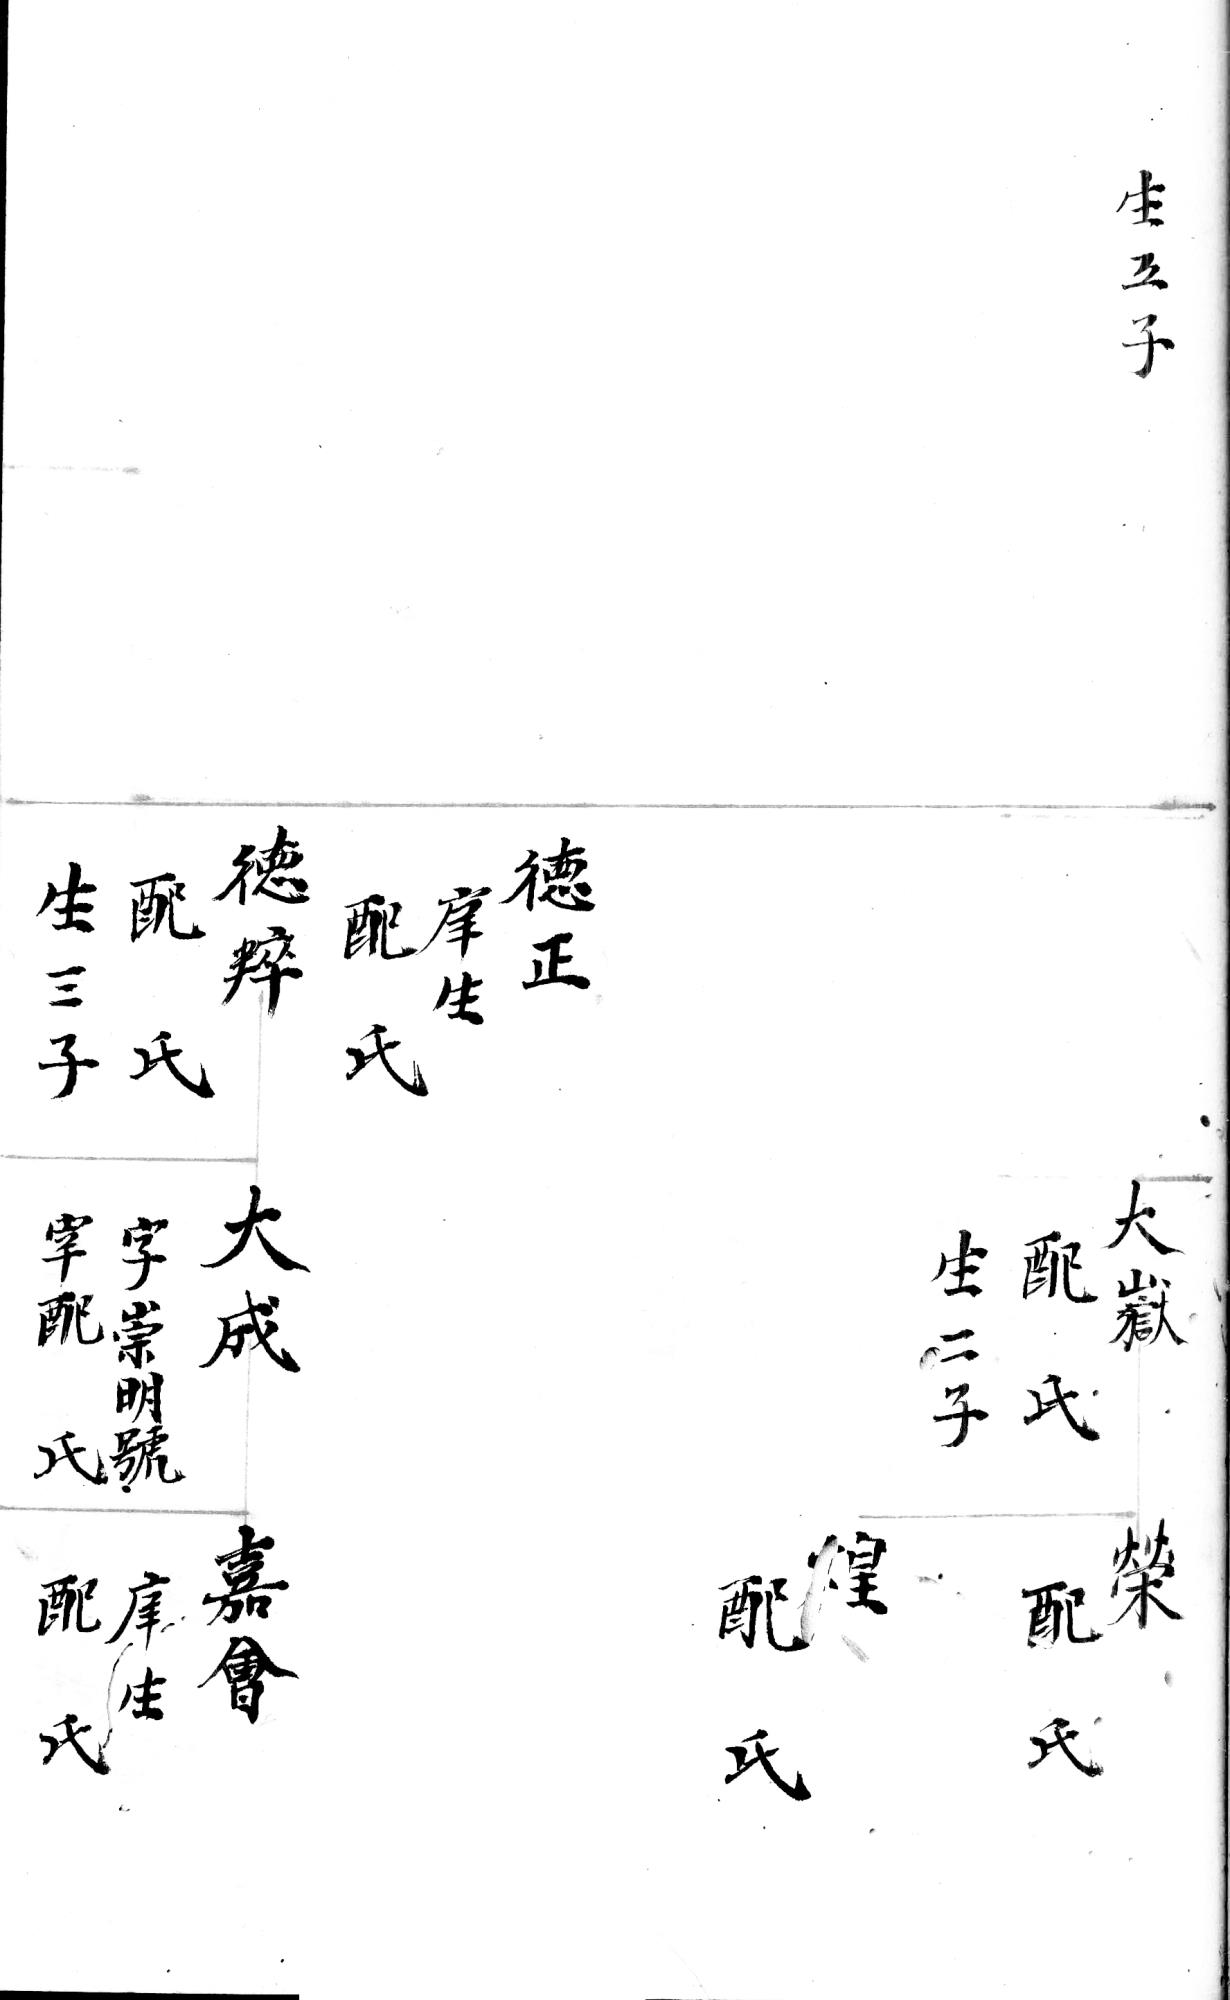 生五子
徳正
庠生
配 氏
徳粹
配 氏
生三子
大嶽
配 氏
生二子
大成
字崇明號
配 氏
榮
配 氏
煌
配 氏
嘉會
庠生
配 氏